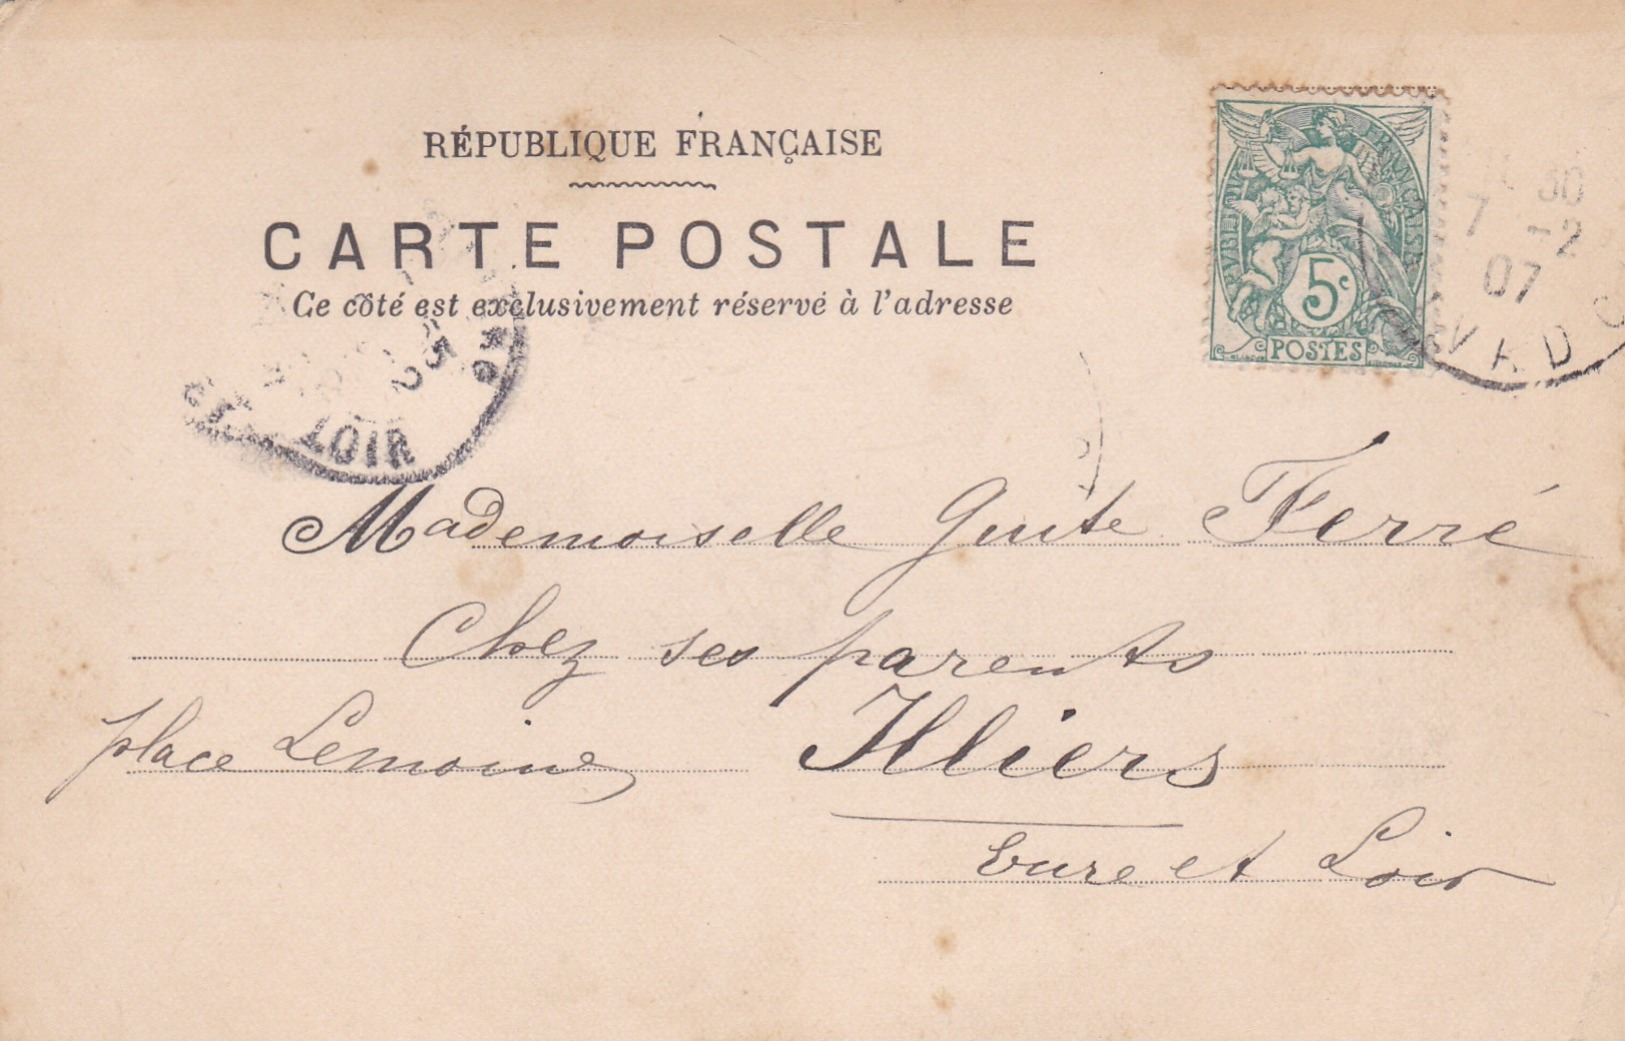 RÉPUBLIQUE FRANÇAISE
CARTE POSTALE
Ce côté est exclusivement réservé à l'adresse
5c
POSTES
7 -2
07
VADO
LOIR
Mademoiselle Guite Ferré
Chez ses parents
place Lemoine Illiers
Eure et Loir